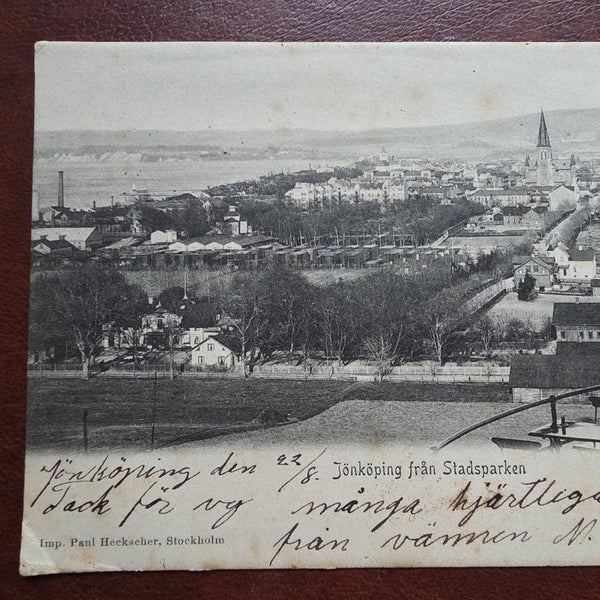 Jönköping från Stadsparken
Jönköping den 22/8
Tack för vy många hjärtliga
från vännen M.
Imp. Paul Heckscher, Stockholm